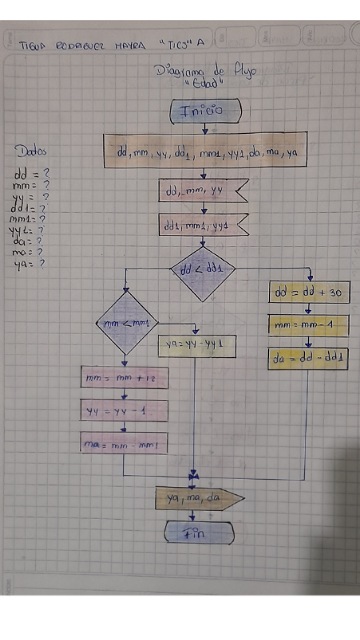 TIGUA RODRIGUEZ MAYRA "TICS" A
Diagrama de flujo
"Edad"
Inicio
dd, mm, yy, dd1, mm1, yy1, da, ma, ya
Datos
dd = ?
mm = ?
yy = ?
dd1 = ?
mm1 = ?
yy1 = ?
da = ?
ma = ?
ya = ?
dd, mm, yy
dd1, mm1, yy1
dd > dd1
dd = dd + 30
mm = mm - 1
da = dd - dd1
mm > mm1
ya = yy - yy1
mm = mm + 12
yy = yy - 1
ma = mm - mm1
ya, ma, da
Fin